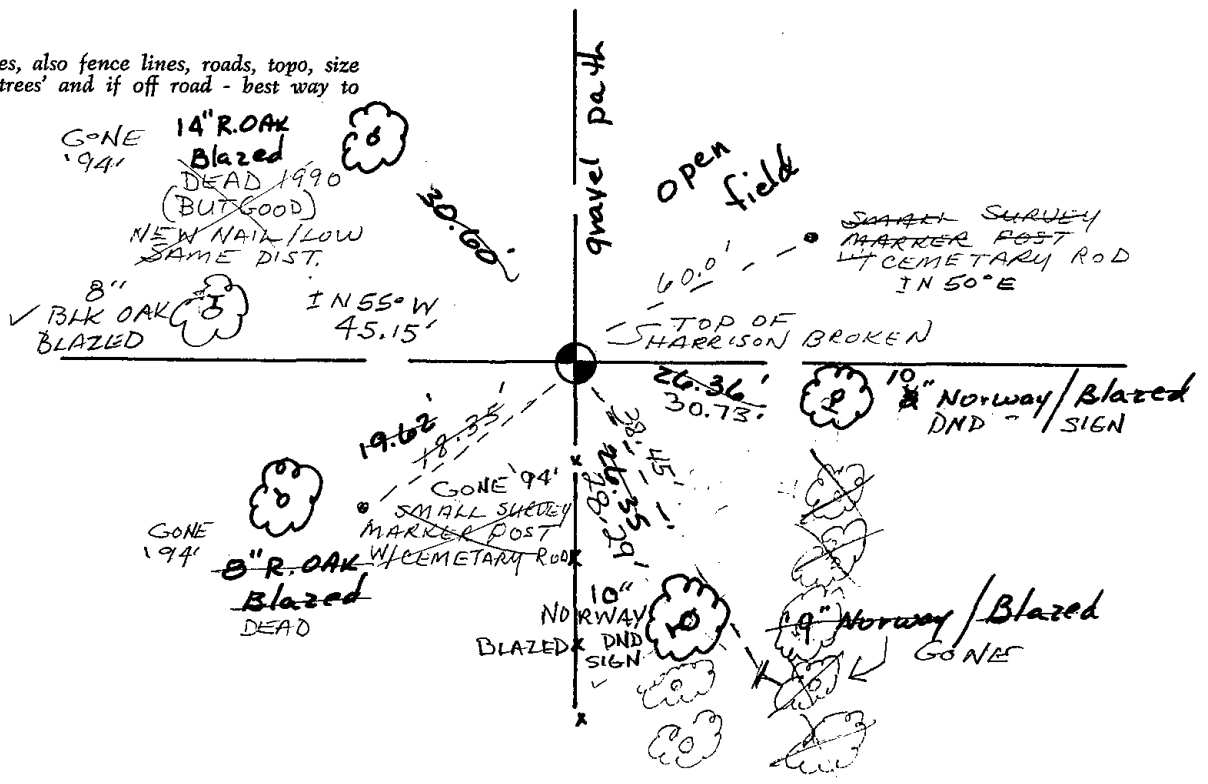 es, also fence lines, roads, topo, size
trees' and if off road - best way to
GONE
'94'
14" R.OAK
Blazed
DEAD 1990
(BUT GOOD)
NEW NAIL/LOW
SAME DIST.
30.60'
gravel path
open
field
SMALL SURVEY
MARKER POST
W/ CEMETARY ROD
IN 50°E
60.0'
8"
✓ BLK OAK
BLAZED
IN 55° W
45.15'
TOP OF
HARRISON BROKEN
26.36'
30.73'
10
" Norway/Blazed
DND - SIGN
19.62'
18.35'
GONE '94'
SMALL SURVEY
MARKER POST
W/CEMETARY ROD
GONE
'94'
8" R. OAK
Blazed
DEAD
28.62'
10"
NORWAY
BLAZED DND
SIGN
✓
9" Norway/Blazed
GONE